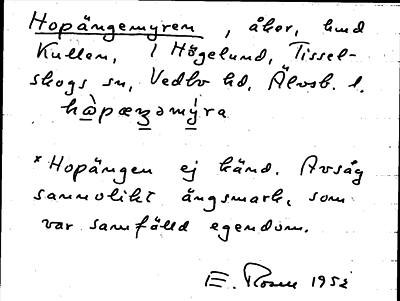 Hopängemyren, åker, hmd
Kullen, 1 Högelund, Tissel-
skogs sn, Vedbo hd, Älvsb. l.
hὼpæʒəmýra
*Hopängen ej känd. Avsåg
sannolikt ängsmark, som
var samfälld egendom.
E. Rosen 1952